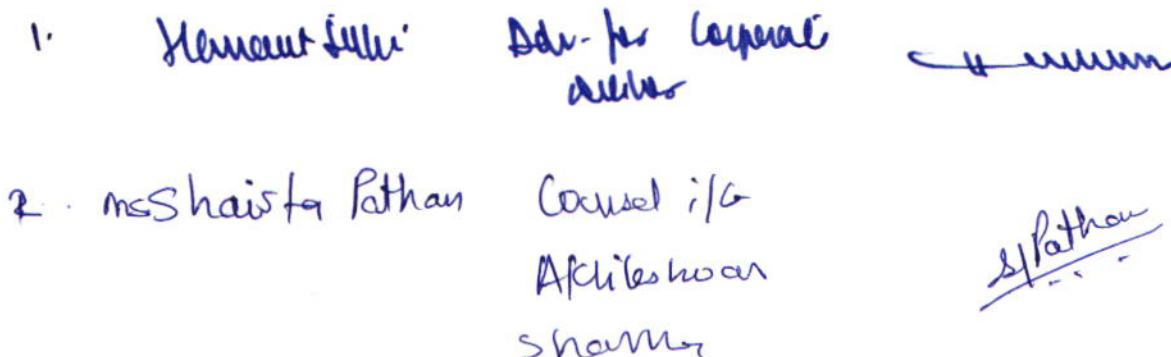 1. Hemant Sethi Adv. for Corporate
Debtor
2. ms Shaista Pathan Counsel i/b
Akhileshwar
Sharma
S/Pathan